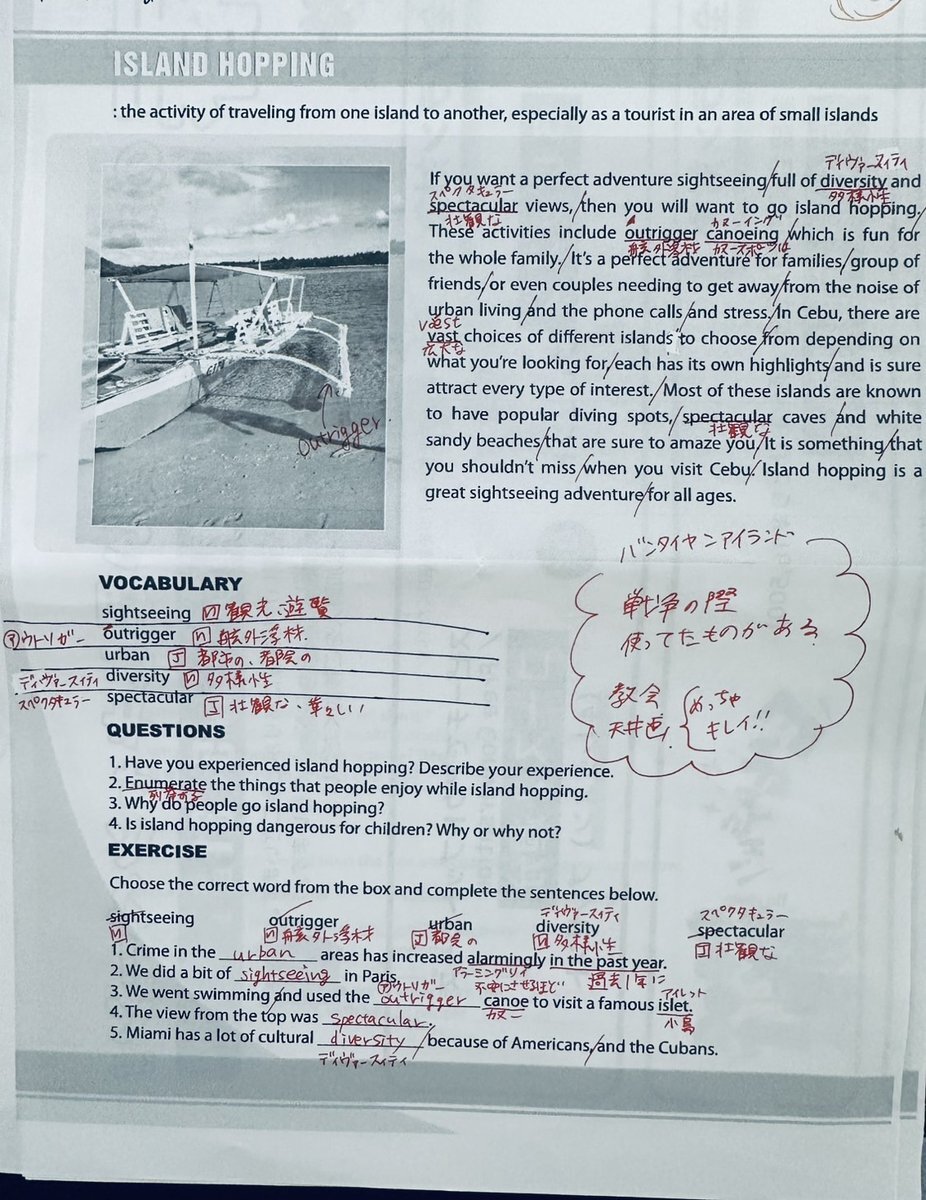 ISLAND HOPPING
: the activity of traveling from one island to another, especially as a tourist in an area of small islands
ディヴァースィティ
If you want a perfect adventure sightseeing/full of diversity and
スペクタキュラー 多様性
spectacular views,/then you will want to go island hopping./
壮観な カヌーイング
These activities include outrigger canoeing/which is fun for
舷外浮材 カヌースポーツは
the whole family./It's a perfect adventure for families/group of
friends/or even couples needing to get away/from the noise of
urban living/and the phone calls/and stress./In Cebu, there are
væst
vast choices of different islands/to choose/from depending on
広大な
what you're looking for,/each has its own highlights/and is sure
attract every type of interest./Most of these islands are known
to have popular diving spots,/spectacular caves/and white
壮観な
sandy beaches/that are sure to amaze you./It is something/that
you shouldn't miss/when you visit Cebu./Island hopping is a
great sightseeing adventure/for all ages.
outrigger
バンタイヤンアイランド
戦争の際
使ってたものがある
教会
天井画! めっちゃ
キレイ!!
VOCABULARY
sightseeing n 観光、遊覧
アウトリガー outrigger n 舷外浮材.
urban J 都市の、都会の
ディヴァースィティ diversity n 多様性
スペクタキュラー spectacular J 壮観な、華々しい
QUESTIONS
1. Have you experienced island hopping? Describe your experience.
2. Enumerate the things that people enjoy while island hopping.
列挙する
3. Why do people go island hopping?
4. Is island hopping dangerous for children? Why or why not?
EXERCISE
Choose the correct word from the box and complete the sentences below.
ディヴァースィティ スペクタキュラー
sightseeing outrigger urban diversity spectacular
n n 舷外浮材 J 都会の n 多様性 J 壮観な
1. Crime in the urban areas has increased alarmingly in the past year.
アラーミングリィ 過去1年に
2. We did a bit of sightseeing in Paris.
アウトリガー 不安にさせるほど アイレット
3. We went swimming/and used the outrigger canoe to visit a famous islet.
カヌー 小島
4. The view from the top was spectacular.
5. Miami has a lot of cultural diversity/because of Americans,/and the Cubans.
ディヴァースィティ